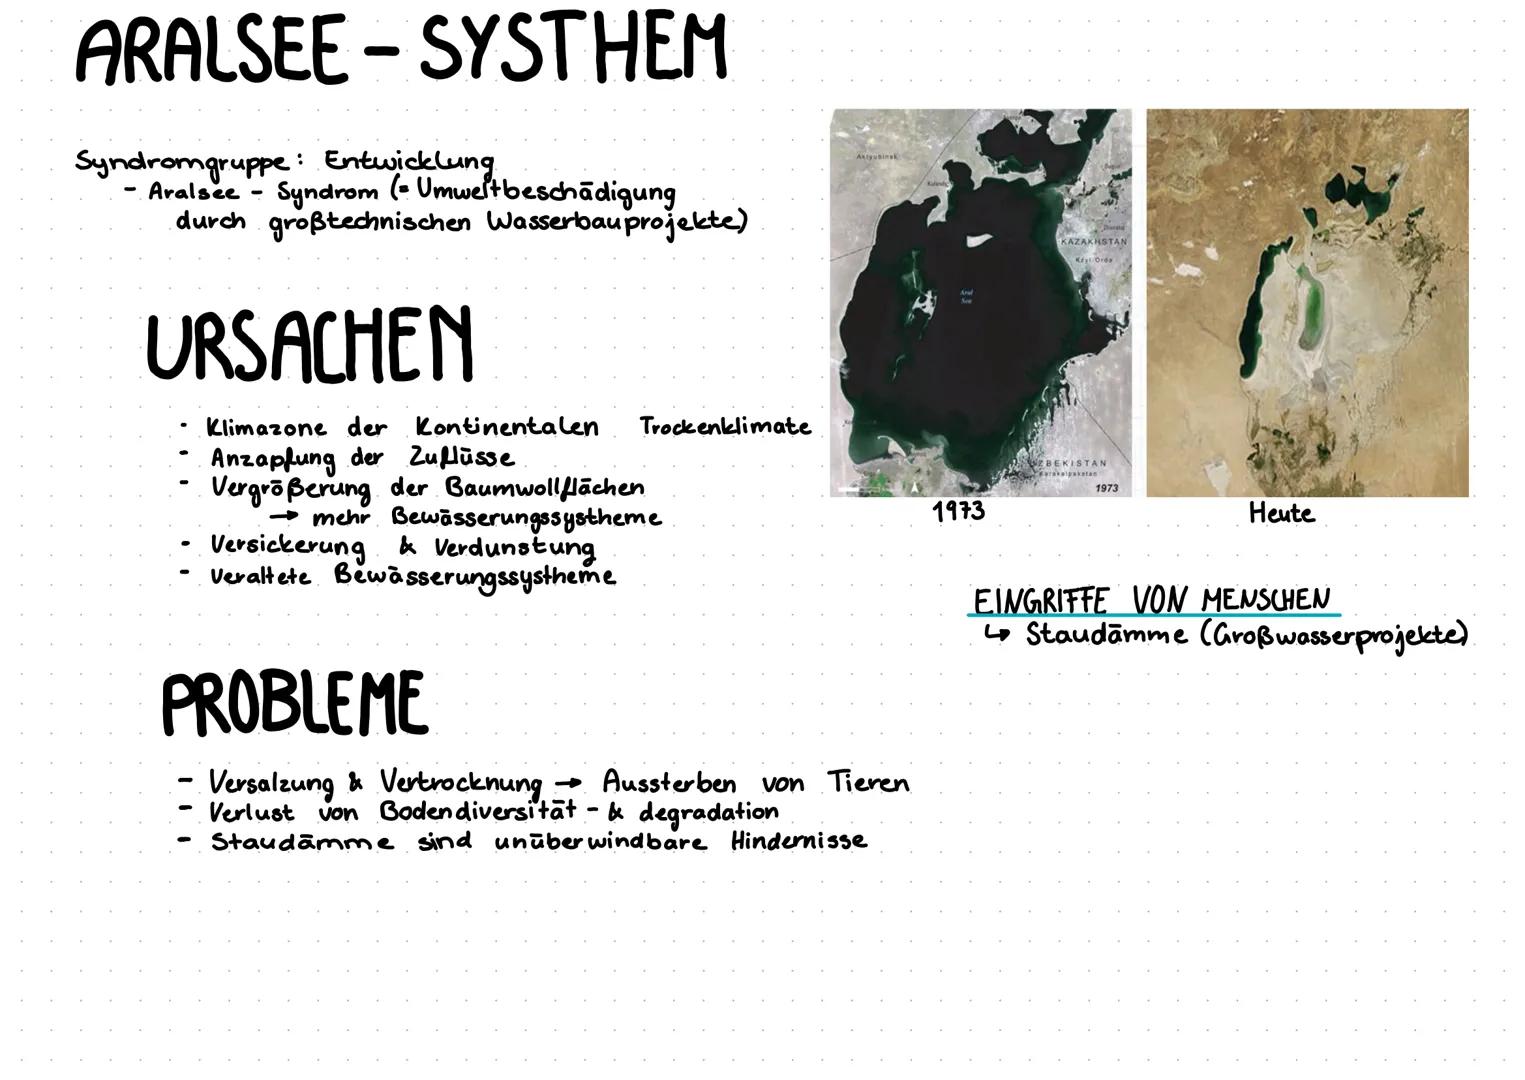 ARALSEE - SYSTHEM
Syndromgruppe: Entwicklung
- Aralsee - Syndrom (= Umweltbeschädigung
durch großtechnischen Wasserbauprojekte)
URSACHEN
· Klimazone der Kontinentalen Trockenklimate
- Anzapfung der Zuflüsse
- Vergrößerung der Baumwollflächen
→ mehr Bewässerungssystheme
- Versickerung & Verdunstung
- Veraltete Bewässerungssystheme
PROBLEME
- Versalzung & Vertrocknung → Aussterben von Tieren
- Verlust von Bodendiversität - & degradation
- Staudämme sind unüberwindbare Hindernisse
Aktyubinsk
Kulandy
KAZAKHSTAN
Kzyl-Orda
Aral
Sea
UZBEKISTAN
Karakalpakstan
1973
1973
Heute
EINGRIFFE VON MENSCHEN
↳ Staudämme (Großwasserprojekte)